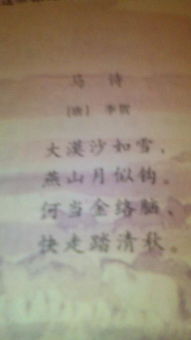 马诗
[唐] 李贺
大漠沙如雪，
燕山月似钩。
何当金络脑，
快走踏清秋。